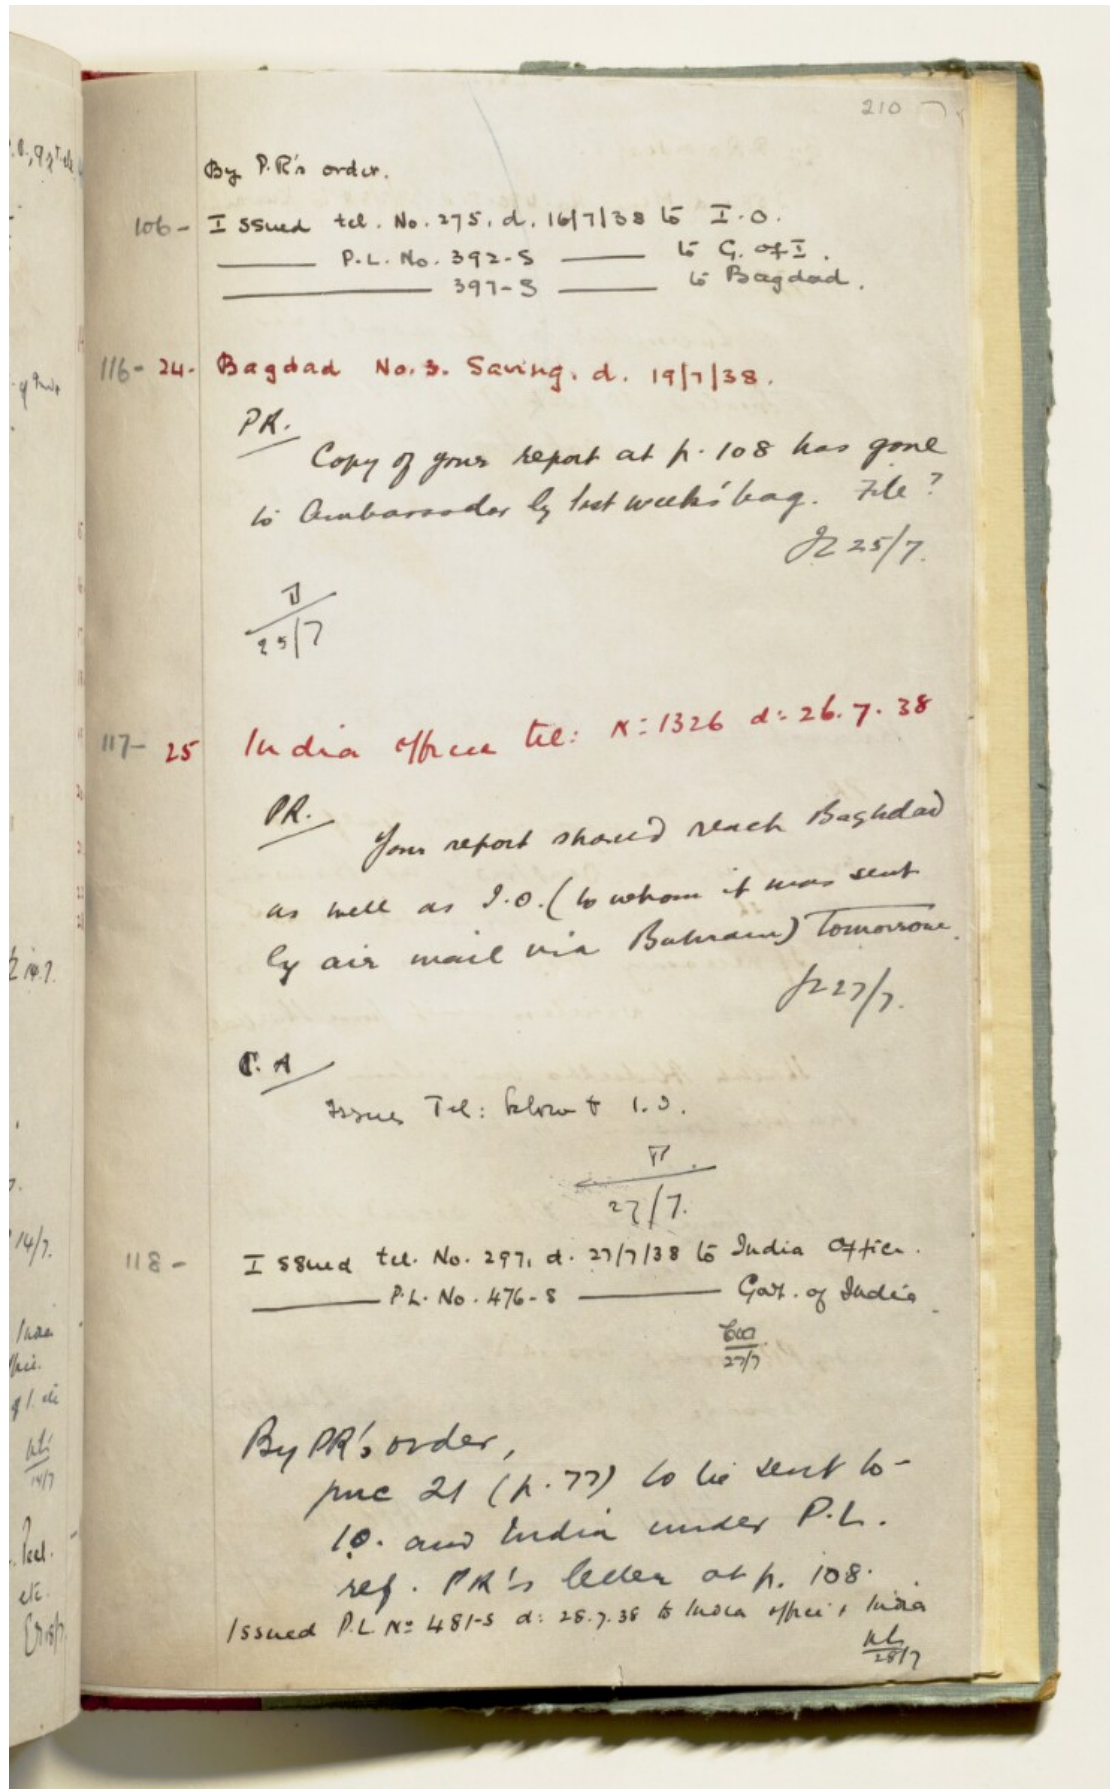 210
By P.R's order.
106- Issued tel. No. 275, d. 16/7/38 to I.O.
P.L. No. 392-S to G. of I.
397-S to Bagdad.
116- 24- Bagdad No. 3. Saving. d. 19/7/38.
PR.
Copy of your report at p. 108 has gone
to Ambassador by last week's bag. File?
25/7.
25/7
117- 25 India office tel: No 1326 d: 26.7.38
PR.
Your report should reach Baghdad
as well as I.O. (to whom it was sent
by air mail via Bahrain) tomorrow.
27/7.
C.A
Issue Tel: below to I.O.
27/7.
118- Issued tel. No. 297, d. 27/7/38 to India Office.
P.L. No. 476-S Govt. of India.
27/7
By PR's order,
puc 21 (p. 77) to be sent to
I.O. and India under P.L.
ref. PR's letter at p. 108.
Issued P.L. No 481-S d: 28.7.38 to India office & India
28/7